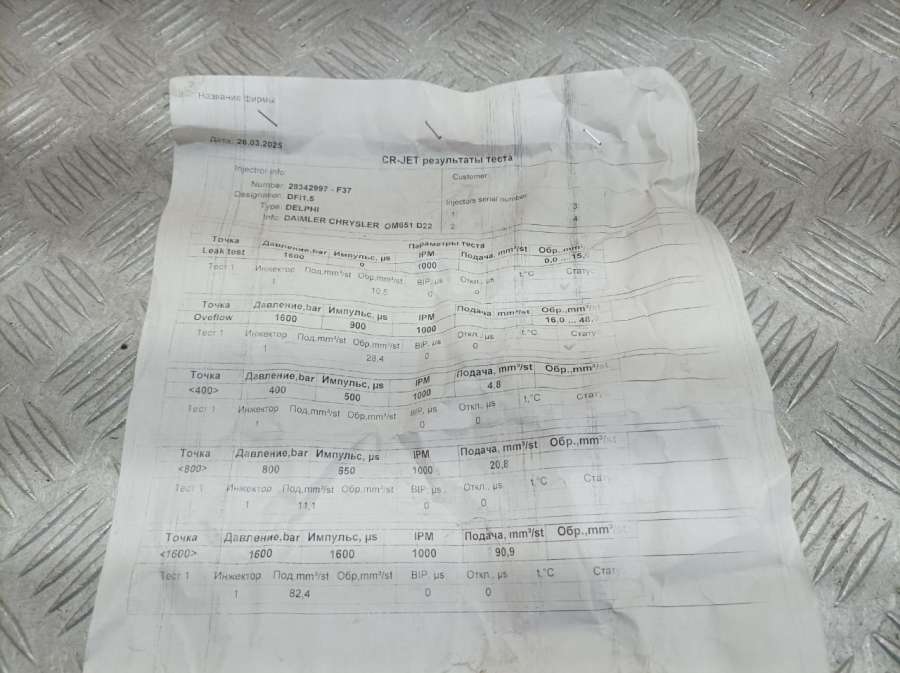 Название фирмы
Дата: 26.03.2025
CR-JET результаты теста
Injector info: Customer:
Number: 28342997 - F37
Designation: DFI1.5
Type: DELPHI
Info: DAIMLER CHRYSLER OM651 D22
Injectors serial number
1 3
2 4
Параметры теста
Точка Давление,bar Импульс, µs IPM Подача, mm³/st Обр.,mm³
Leak test 1600 0 1000 0,0 ... 15,
Тест 1 Инжектор Под,mm³/st Обр,mm³/st BIP, µs Откл., µs t,°C Стату
1 10,5 0 0
Точка Давление,bar Импульс, µs IPM Подача, mm³/st Обр.,mm³/st
Oveflow 1600 900 1000 16,0 ... 48,
Тест 1 Инжектор Под,mm³/st Обр,mm³/st BIP, µs Откл., µs t,°C Стату
1 28,4 0 0
Точка Давление,bar Импульс, µs IPM Подача, mm³/st Обр.,mm³/st
<400> 400 500 1000 4,8
Тест 1 Инжектор Под,mm³/st Обр,mm³/st BIP, µs Откл., µs t,°C Стату
1 0 0
Точка Давление,bar Импульс, µs IPM Подача, mm³/st Обр.,mm³/st
<800> 800 550 1000 20,8
Тест 1 Инжектор Под,mm³/st Обр,mm³/st BIP, µs Откл., µs t,°C Стату
1 11,1 0 0
Точка Давление,bar Импульс, µs IPM Подача, mm³/st Обр.,mm³/st
<1600> 1600 1600 1000 90,9
Тест 1 Инжектор Под,mm³/st Обр,mm³/st BIP, µs Откл., µs t,°C Стату
1 82,4 0 0